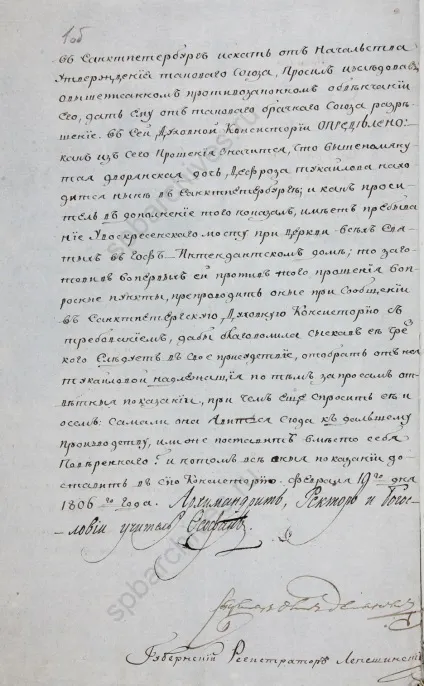 1об
въ Санктпетербургѣ искать отъ Начальства
Утвержденія таковаго Союза, Просилъ изслѣдовавъ
о вышеписанномъ противозаконномъ обвѣнчаніи
Его, дать Ему отъ таковаго брачнаго Союза разрѣ
шеніе. въ Сей Духовной Консисторіи ОПРЕДѢЛЕНО:
какъ изъ Сего Прошенія значится, что вышепомяну
тая дворянская дочь Тукайлова нахо
дится нынѣ въ Санктпетербургѣ; и какъ проси
тель въ дополненіе того показалъ, имѣетъ пребыва
ніе Увоскресенскаго мосту при Церкви всѣхъ Свя
тыхъ въ Гофъ-Интендантскомъ домѣ; то заго
товивъ вопервыхъ ей противъ того прошенія воп
росные пункты, препроводить оные при Сообщеніи
въ Санктпетербургскую Духовную Консисторію съ
требованіемъ, дабы благоволила сыскавъ ее
кого Слѣдуетъ въ Свое присутствіе, отобрать отъ нея
Тукайловой надлежащія по тѣмъ запросамъ от
вѣтныя показаніи, при чемъ еще спросить ея и
осемъ: Сама ли она явится Сюда къ дальшему
производству, или же поставитъ вмѣсто себя
Повѣреннаго? и потомъ всѣ оныя показаніи до
ставить въ сію Консисторію. февраля 19го дня
1806го года. Архимандритъ, Ректоръ и Богос-
ловіи учитель
Губернскій Регистраторъ Лепешинскій
spbarchives.ru